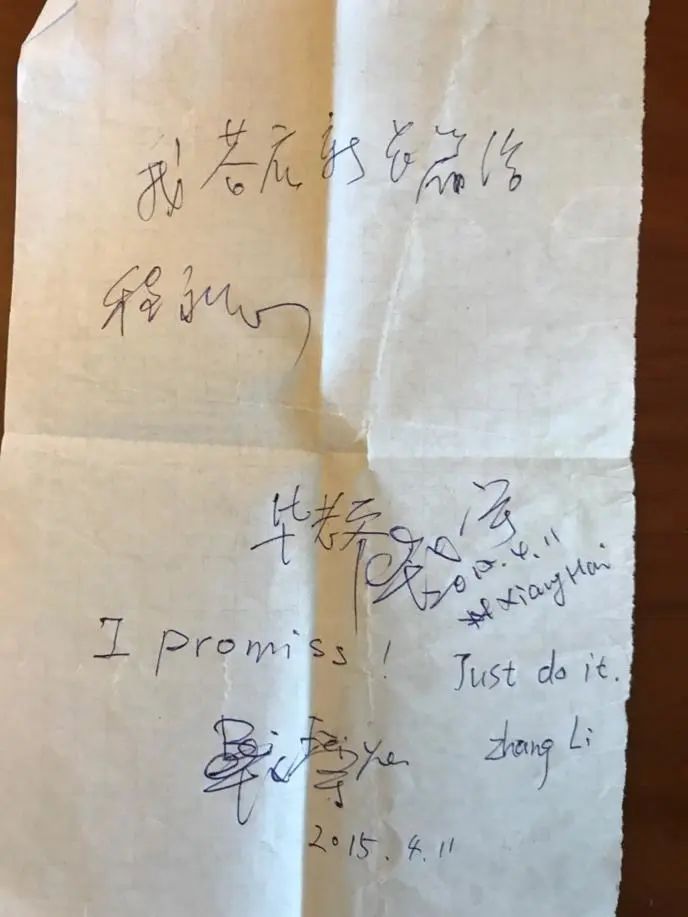 我答应新长篇给
程永新
2015.4.11
XiangHai
I promiss!
Just do it.
Zhang Li
2015.4.11